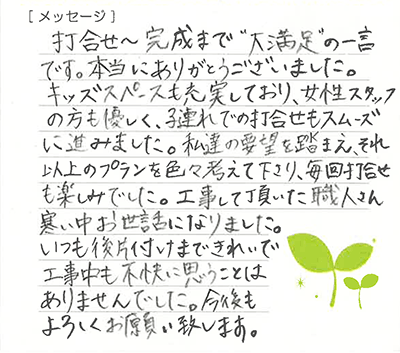 [ メッセージ ]
打合せ〜完成まで"大満足"の一言
です。本当にありがとうございました。
キッズスペースも充実しており、女性スタッフ
の方も優しく、子連れでの打合せもスムーズ
に進みました。私達の要望を踏まえ、それ
以上のプランを色々考えて下さり、毎回打合せ
も楽しみでした。工事して頂いた職人さん
寒い中お世話になりました。
いつも後片付けまできれいで
工事中も不快に思うことは
ありませんでした。今後も
よろしくお願い致します。